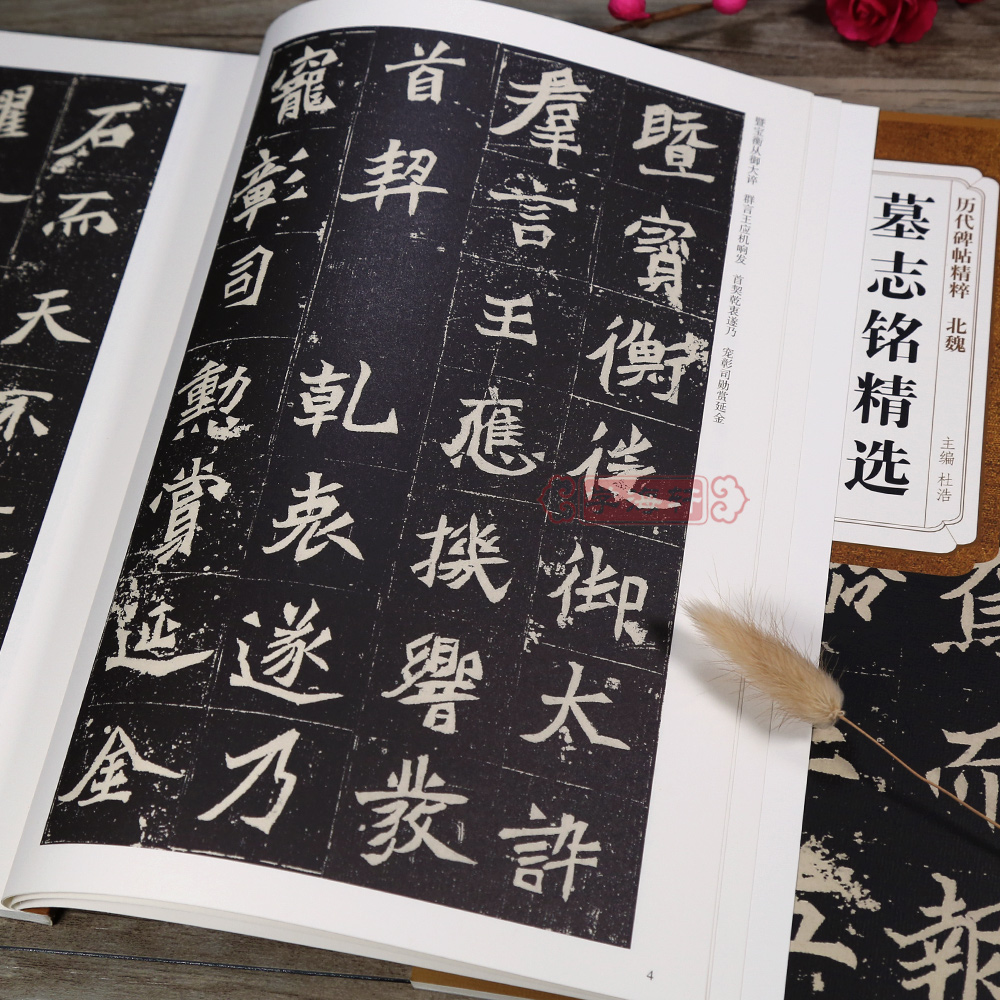 暨寳衡從御大誶
羣言王應機響發
首契乾衷遂乃
寵彰司勳賞延金
暨宝衡从御大谇 群言王应机响发 首契乾衷遂乃 宠彰司勋赏延金
4
石而天
历代碑帖精粹 北魏
墓志铭精选
主编 杜浩
而
報